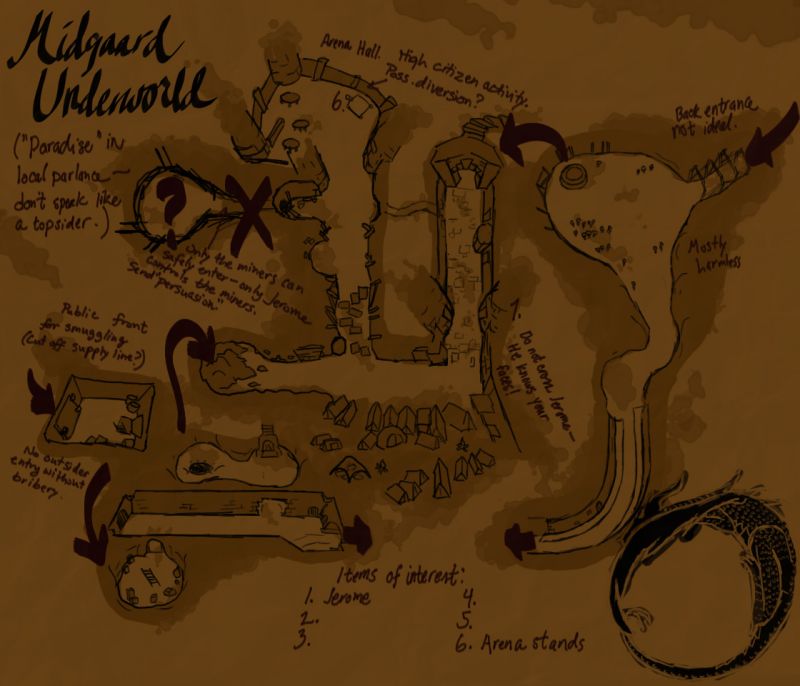 Midgaard
Underworld
("Paradise" in
local parlance—
don't speak like
a topsider.)
Arena Hall. High citizen activity.
Poss. diversion?
6.
Back entrance
not ideal.
?
Only the miners can
safely enter—only Jerome
controls the miners.
Send "persuasion"
Mostly
harmless
Public front
for smuggling
(Cut off supply line?)
1. Do not cross Jerome—
He knows your
faces!
No outsider
entry without
bribery.
Items of interest:
1. Jerome
2.
3.
4.
5.
6. Arena stands